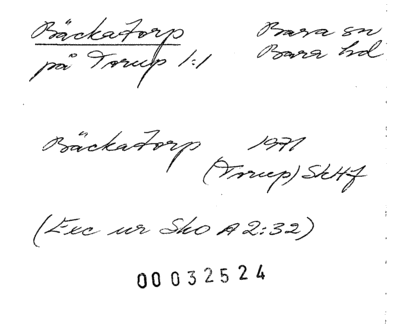 Bäckatorp Bara sn
på Torup 1:1 Bara hd
Bäckatorp 1971
(Torup) SkHf
(Exc ur SkO A 2:32)
00032524